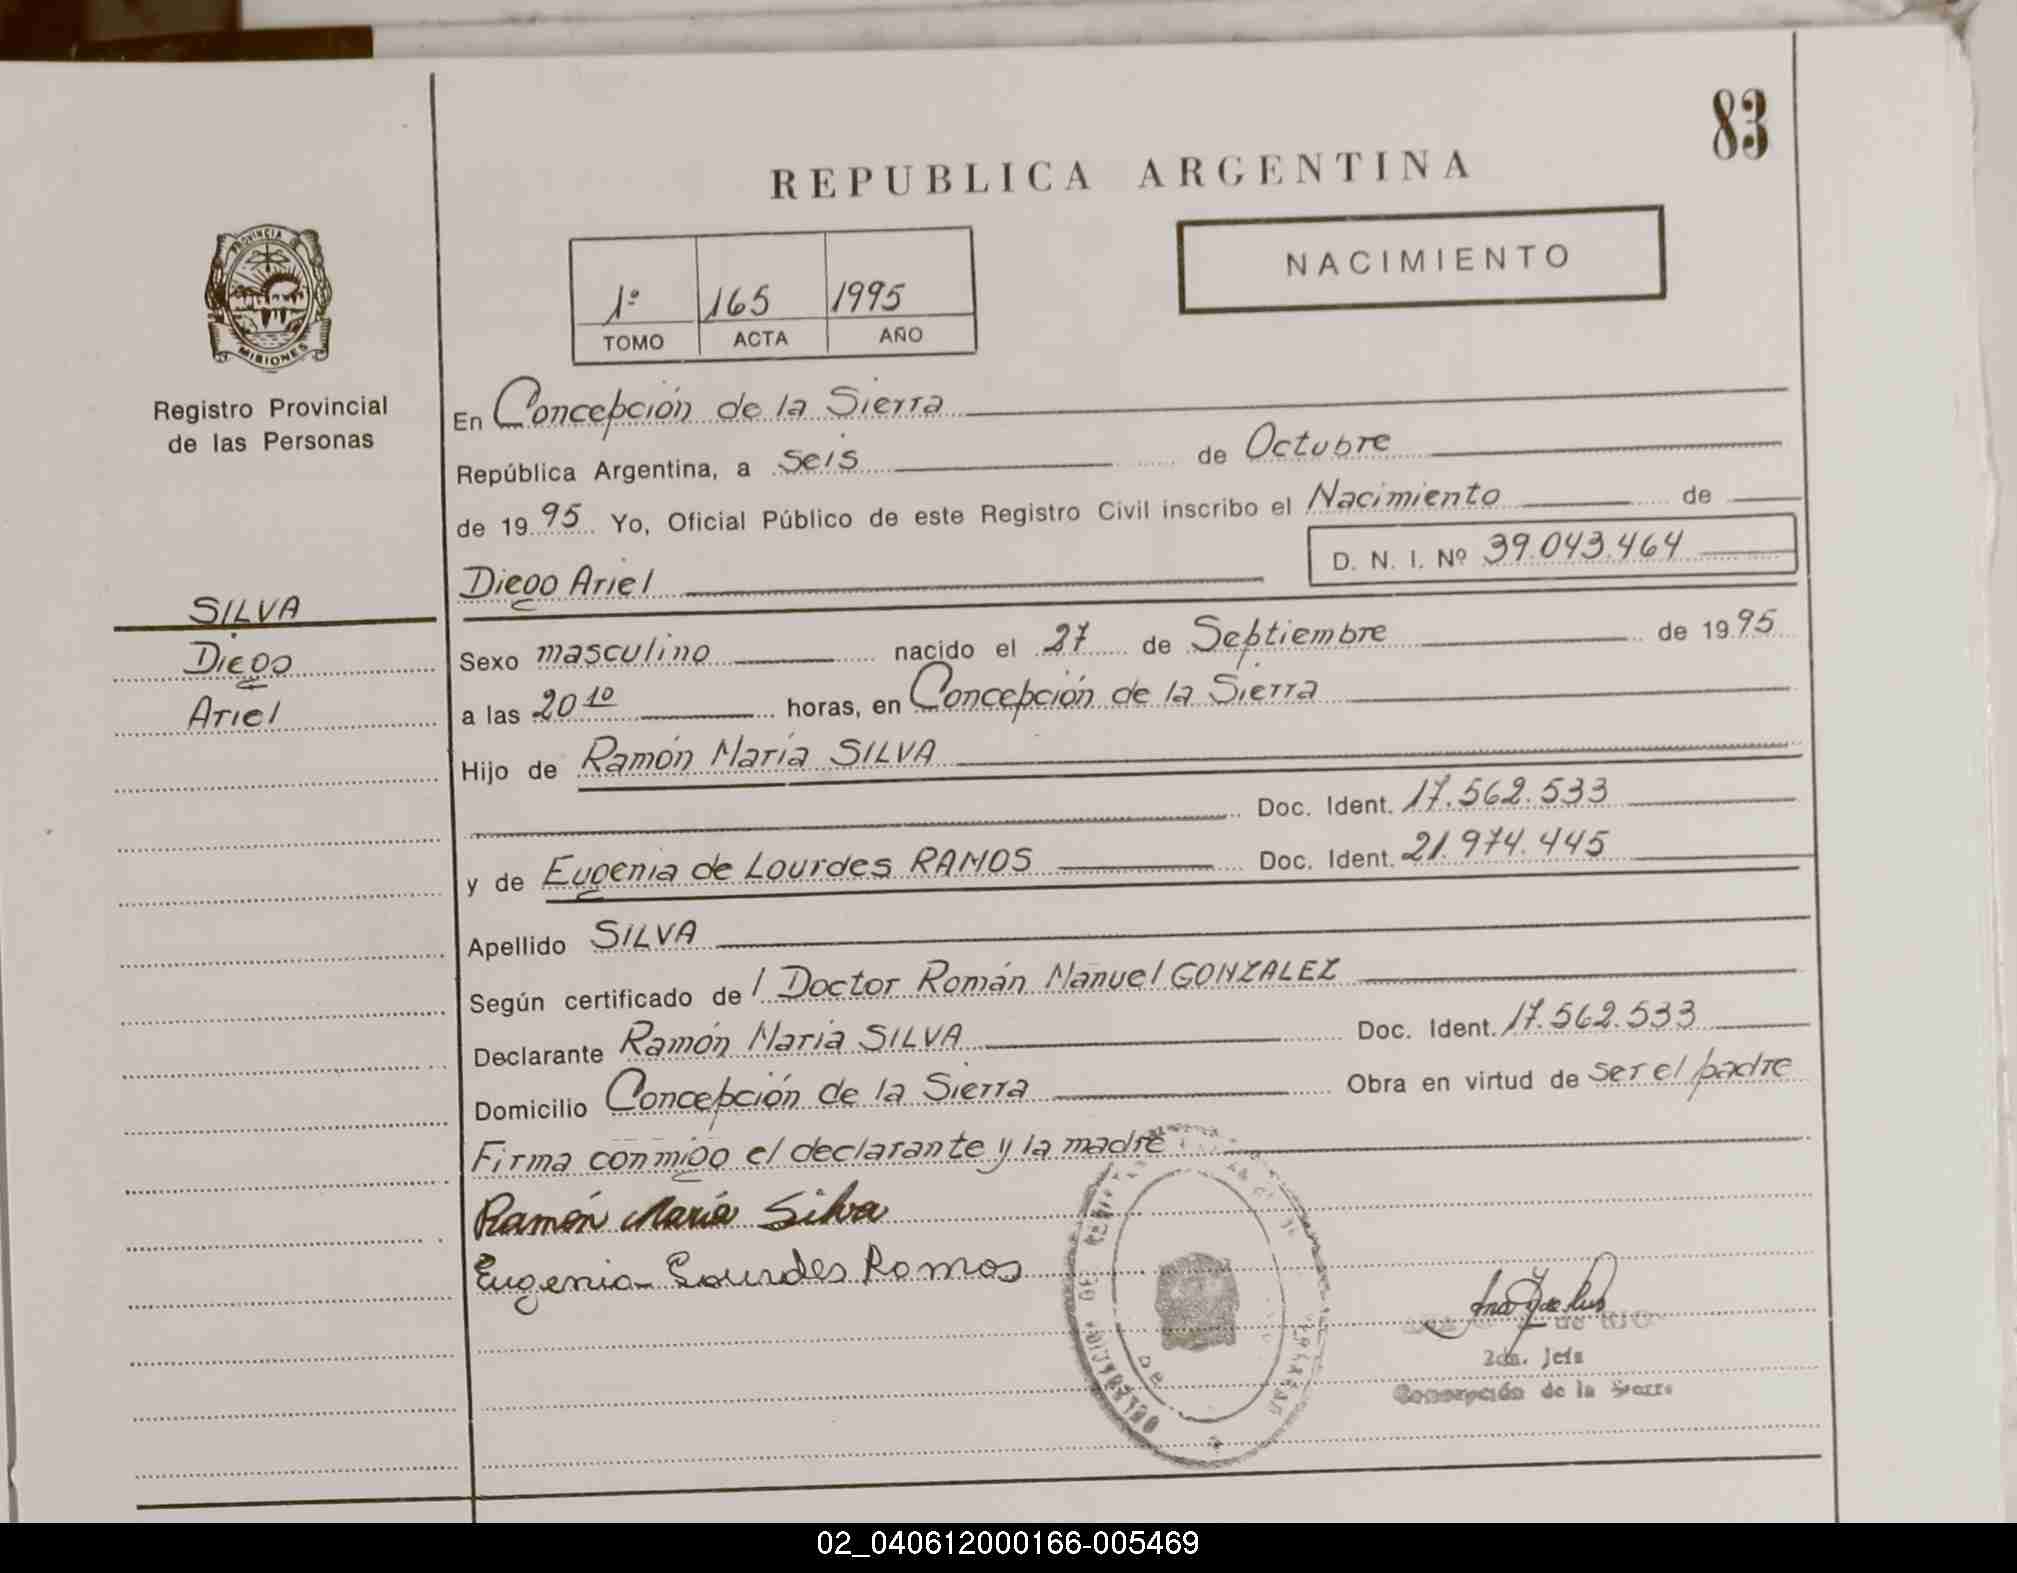 83
REPUBLICA ARGENTINA
PROVINCIA
MISIONES
Registro Provincial
de las Personas
1º 165 1995
TOMO ACTA AÑO
NACIMIENTO
En Concepción de la Sierra
República Argentina, a seis de Octubre
de 1995 Yo, Oficial Público de este Registro Civil inscribo el Nacimiento de
D. N. I. Nº 39.043.464
Diego Ariel
SILVA
Diego
Ariel
Sexo masculino nacido el 27 de Septiembre de 1995
a las 20 10 horas, en Concepción de la Sierra
Hijo de Ramón María SILVA
Doc. Ident. 17.562.533
y de Eugenia de Lourdes RAMOS Doc. Ident. 21.974.445
Apellido SILVA
Según certificado de l Doctor Román Manuel GONZALEZ
Declarante Ramón María SILVA Doc. Ident. 17.562.533
Domicilio Concepción de la Sierra Obra en virtud de ser el padre
Firma conmigo el declarante y la madre
Ramón María Silva
Eugenia Lourdes Ramos
de
Concepción de la Sierra
02_040612000166-005469